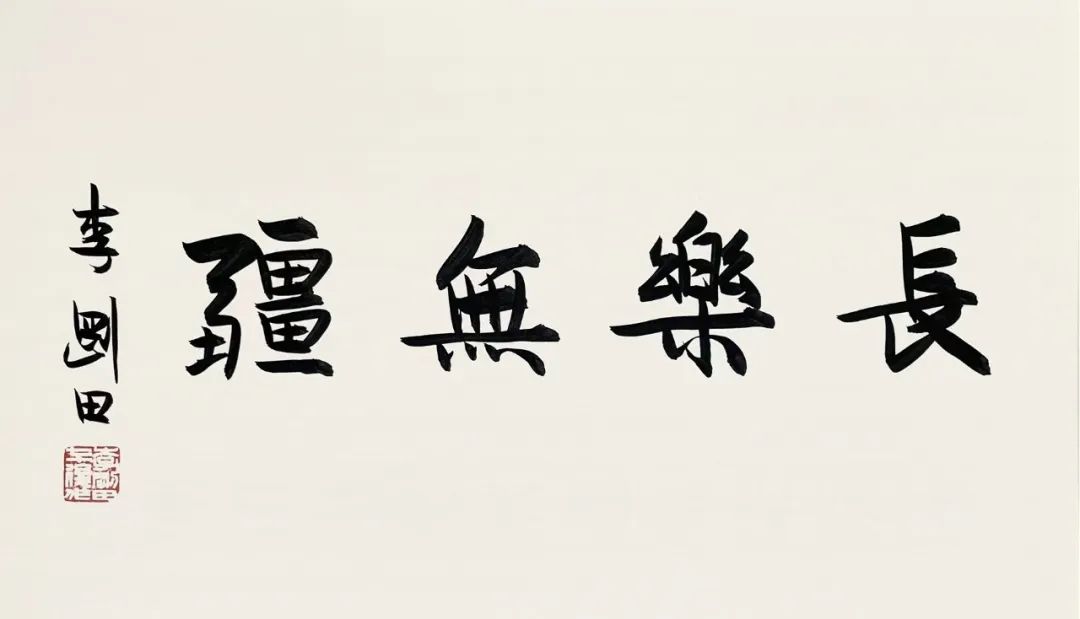 長樂無疆
李剛田